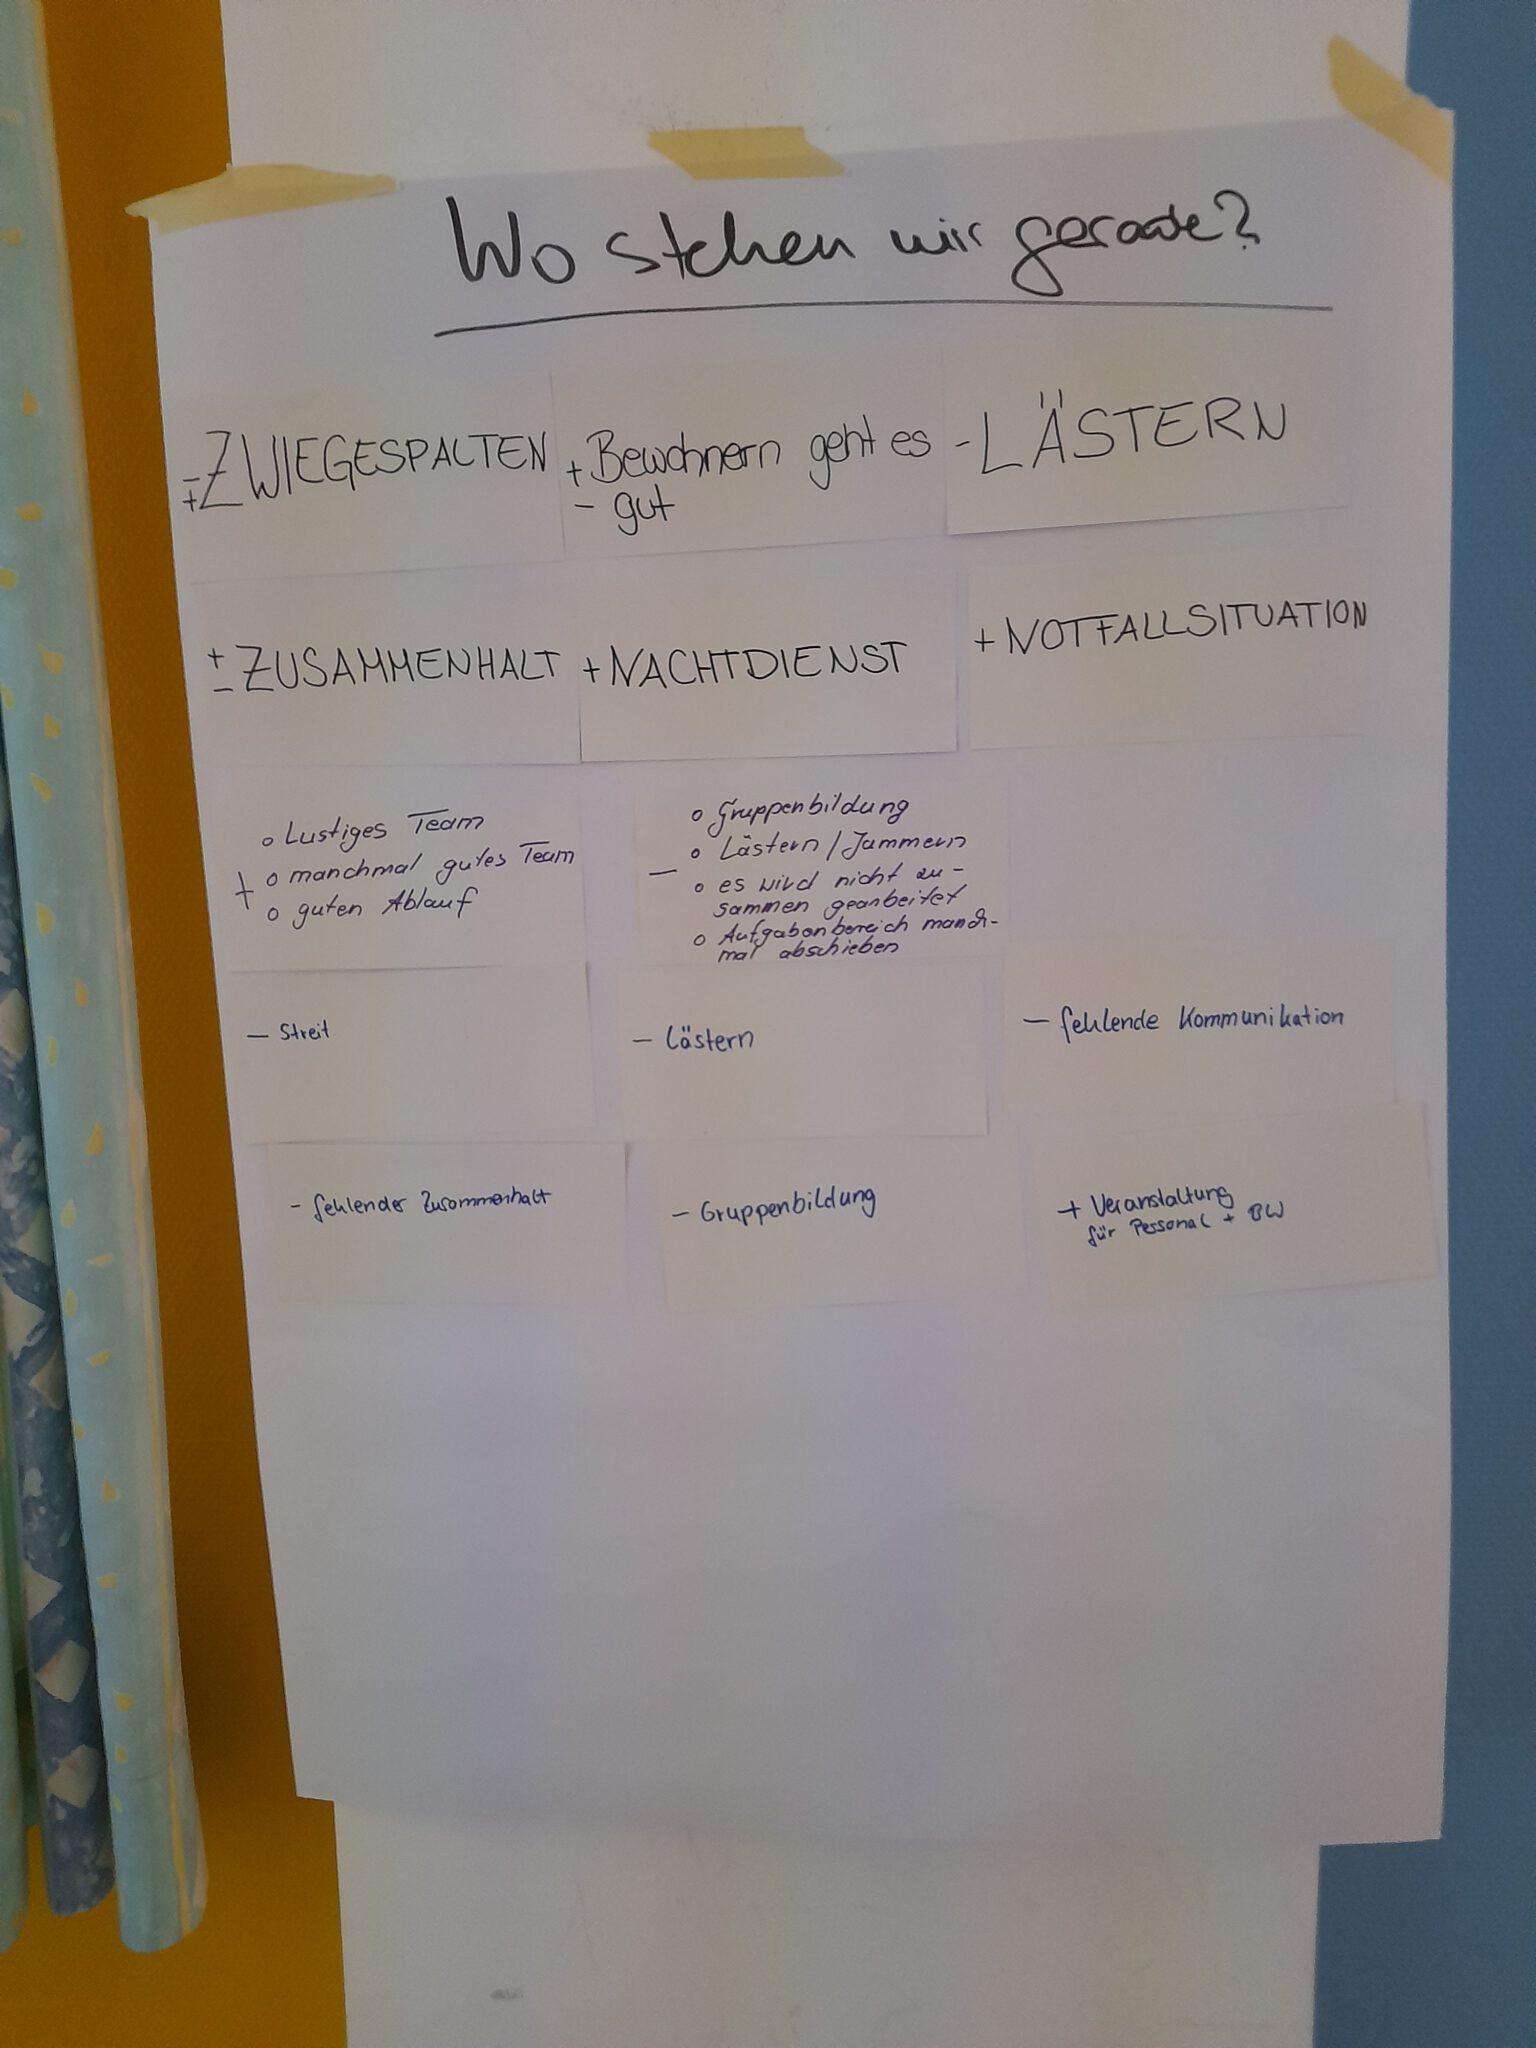 Wo stehen wir gerade?
-+ ZWIEGESPALTEN
+ Bewohnern geht es
- gut
- LÄSTERN
+- ZUSAMMENHALT
+ NACHTDIENST
+ NOTFALLSITUATION
o Lustiges Team
+ o manchmal gutes Team
o guten Ablauf
o Gruppenbildung
o Lästern / Jammern
- o es wird nicht zu-
sammen gearbeitet
o Aufgabenbereich manch-
mal abschieben
- Streit
- Lästern
- fehlende Kommunikation
- fehlender Zusammenhalt
- Gruppenbildung
+ Veranstaltung
für Personal + BW